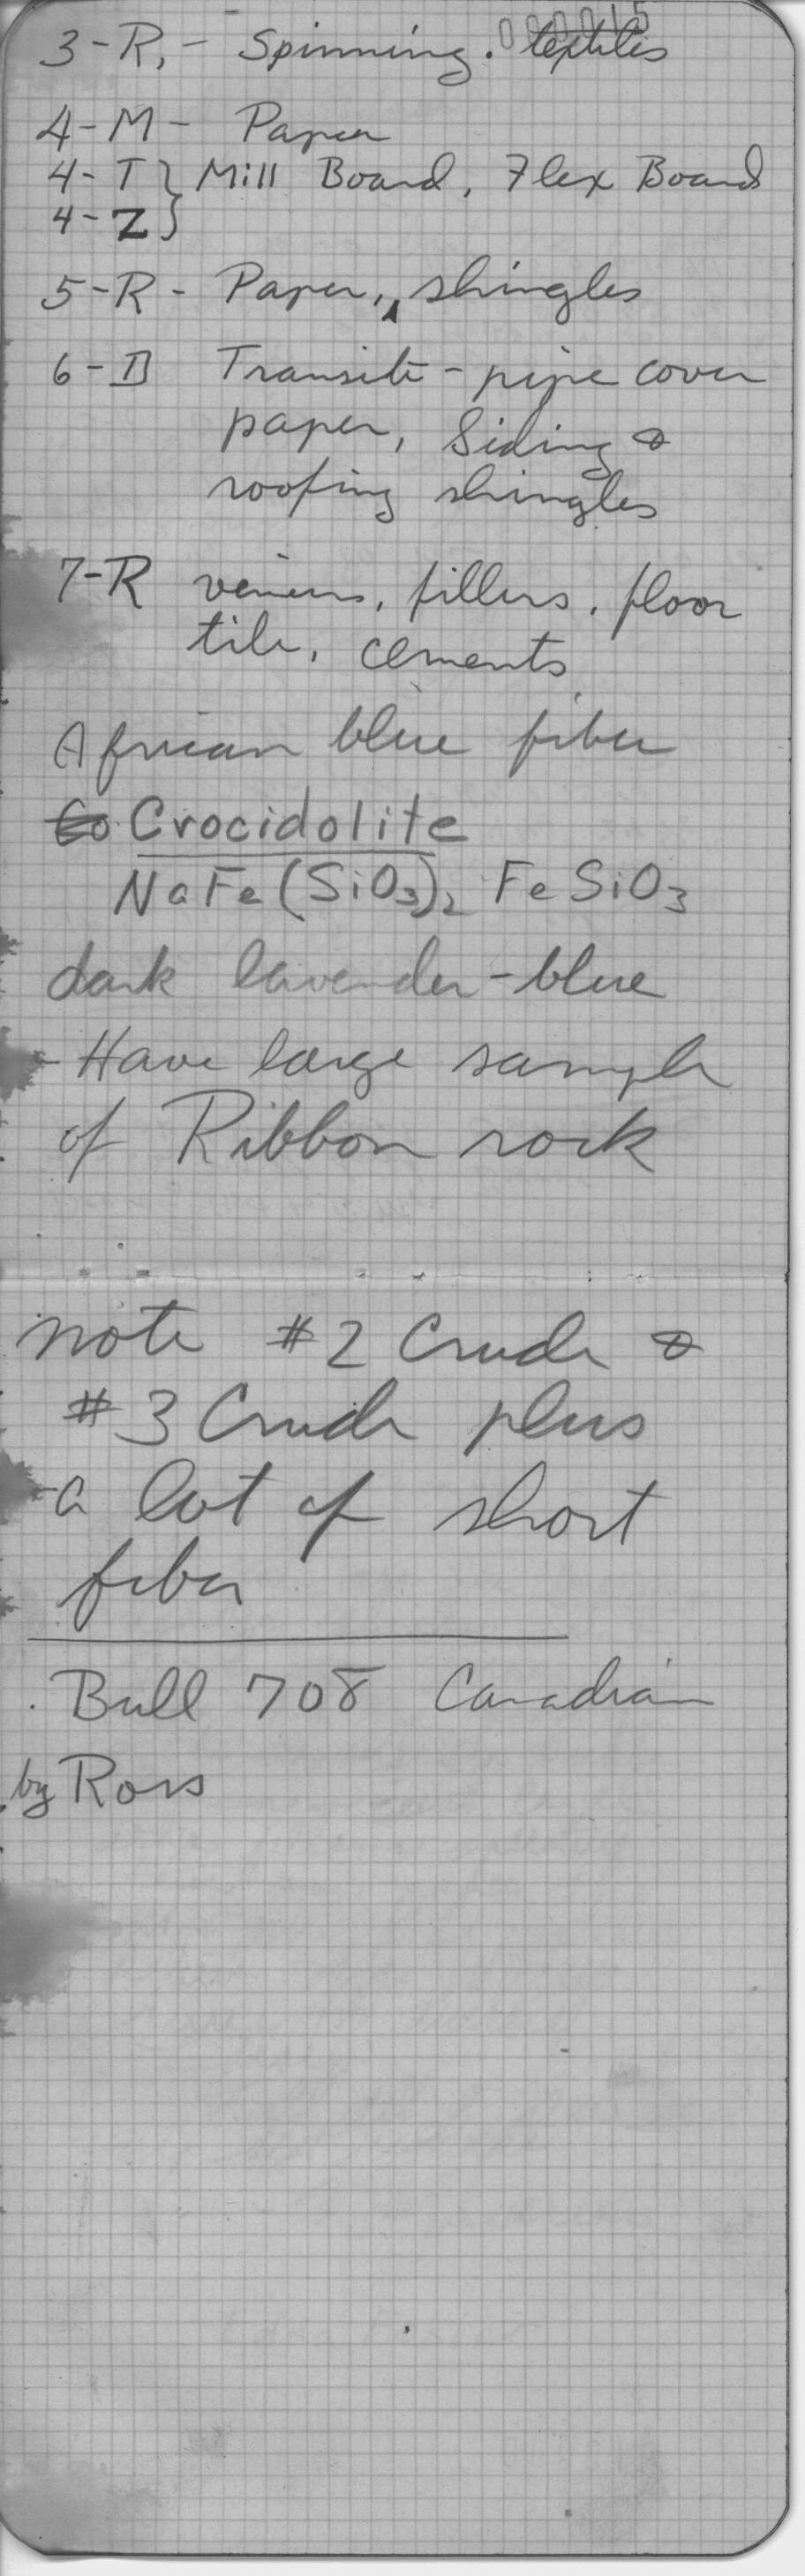 000015
3-R, - Spinning. textiles
4-M - Paper
4-T } Mill Board, Flex Board
4-Z }
5-R - Paper, shingles
6-D Transite - pipe cover
paper, Siding &
roofing shingles
7-R fillers, floor
tile, cements
African blue fiber
Co Crocidolite
NaFe(SiO3)2 FeSiO3
dark lavender-blue
- Have large sample
of Ribbon rock
note #2 Crude &
#3 Crude plus
a lot of short
fiber
Bull 708 Canadian
by Ross